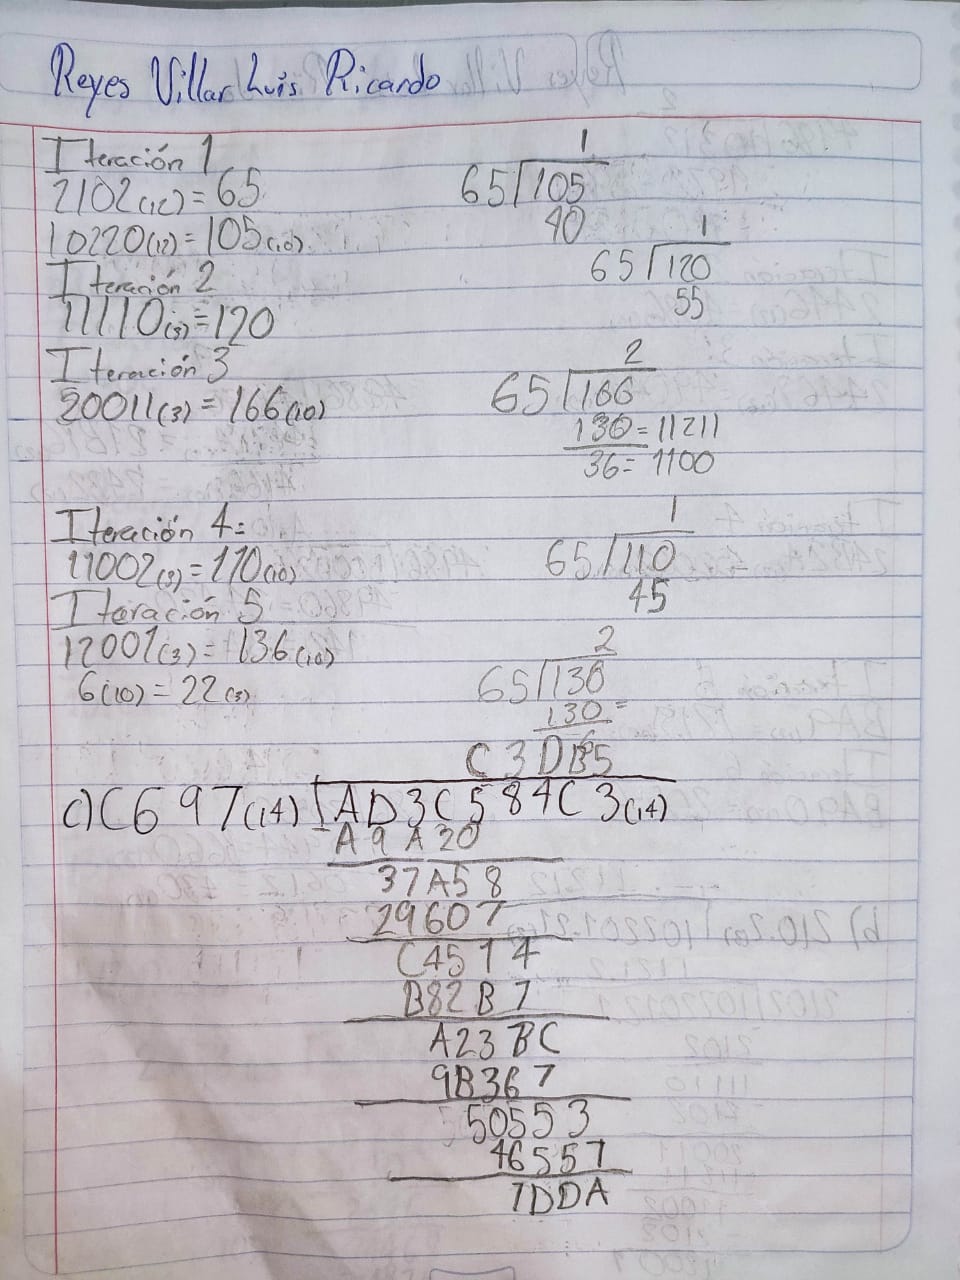 Reyes Villar Luis Ricardo
Iteración 1
2102(12)=65
10220(12)=105(10)
1
65 105
40
Iteración 2
11110(3)=120
1
65 120
55
Iteración 3
20011(3)=166(10)
2
65 166
130=11211
36=1100
Iteración 4=
11002(3)=110(10)
1
65 110
45
Iteración 5
12001(3)=136(10)
6(10)=22(3)
2
65 136
130
6
C3DB5
c) C697(14) AD3C584C3(14)
A9A20
37A58
29607
C4514
B82B7
A23BC
9B367
50553
46557
7DDA